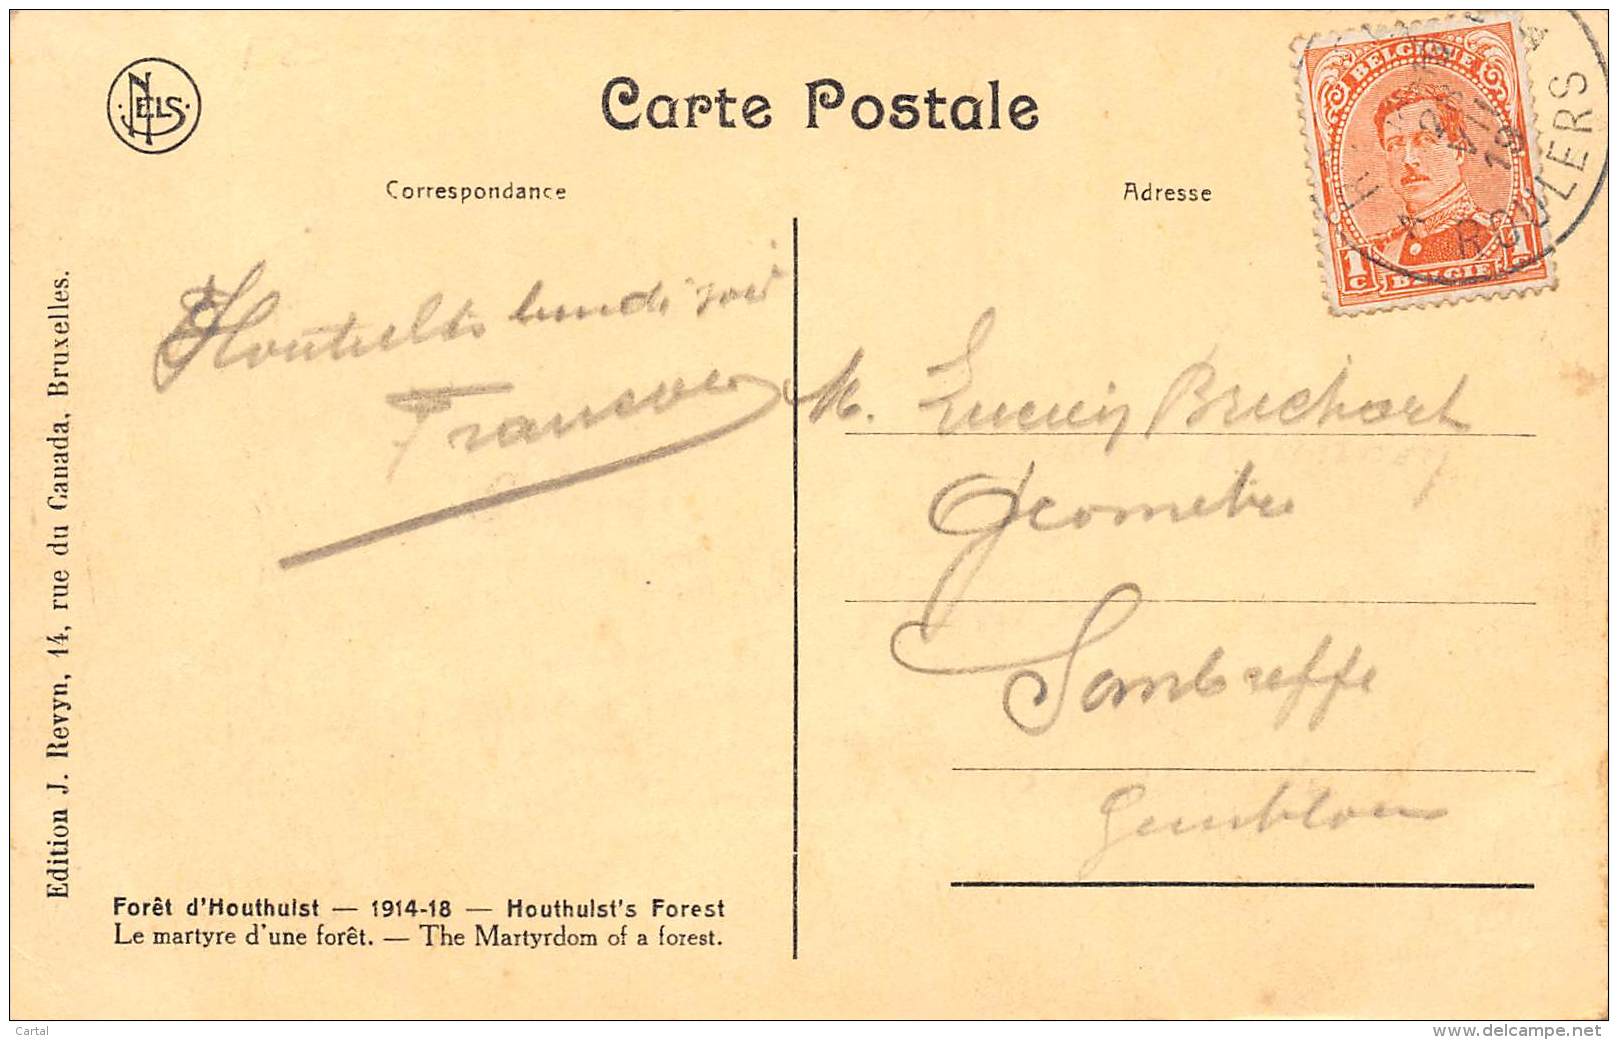 NELS
Carte Postale
Correspondance
Adresse
BELGIQUE
1c
1c
BELGIË
ROULERS
Edition J. Revyn, 14, rue du Canada, Bruxelles.
lundi soir
M. Brichart
Géometre
Sombreffe
Gembloux
Forêt d'Houthulst — 1914-18 — Houthulst's Forest
Le martyre d'une forêt. — The Martyrdom of a forest.
Cartal
www.delcampe.net